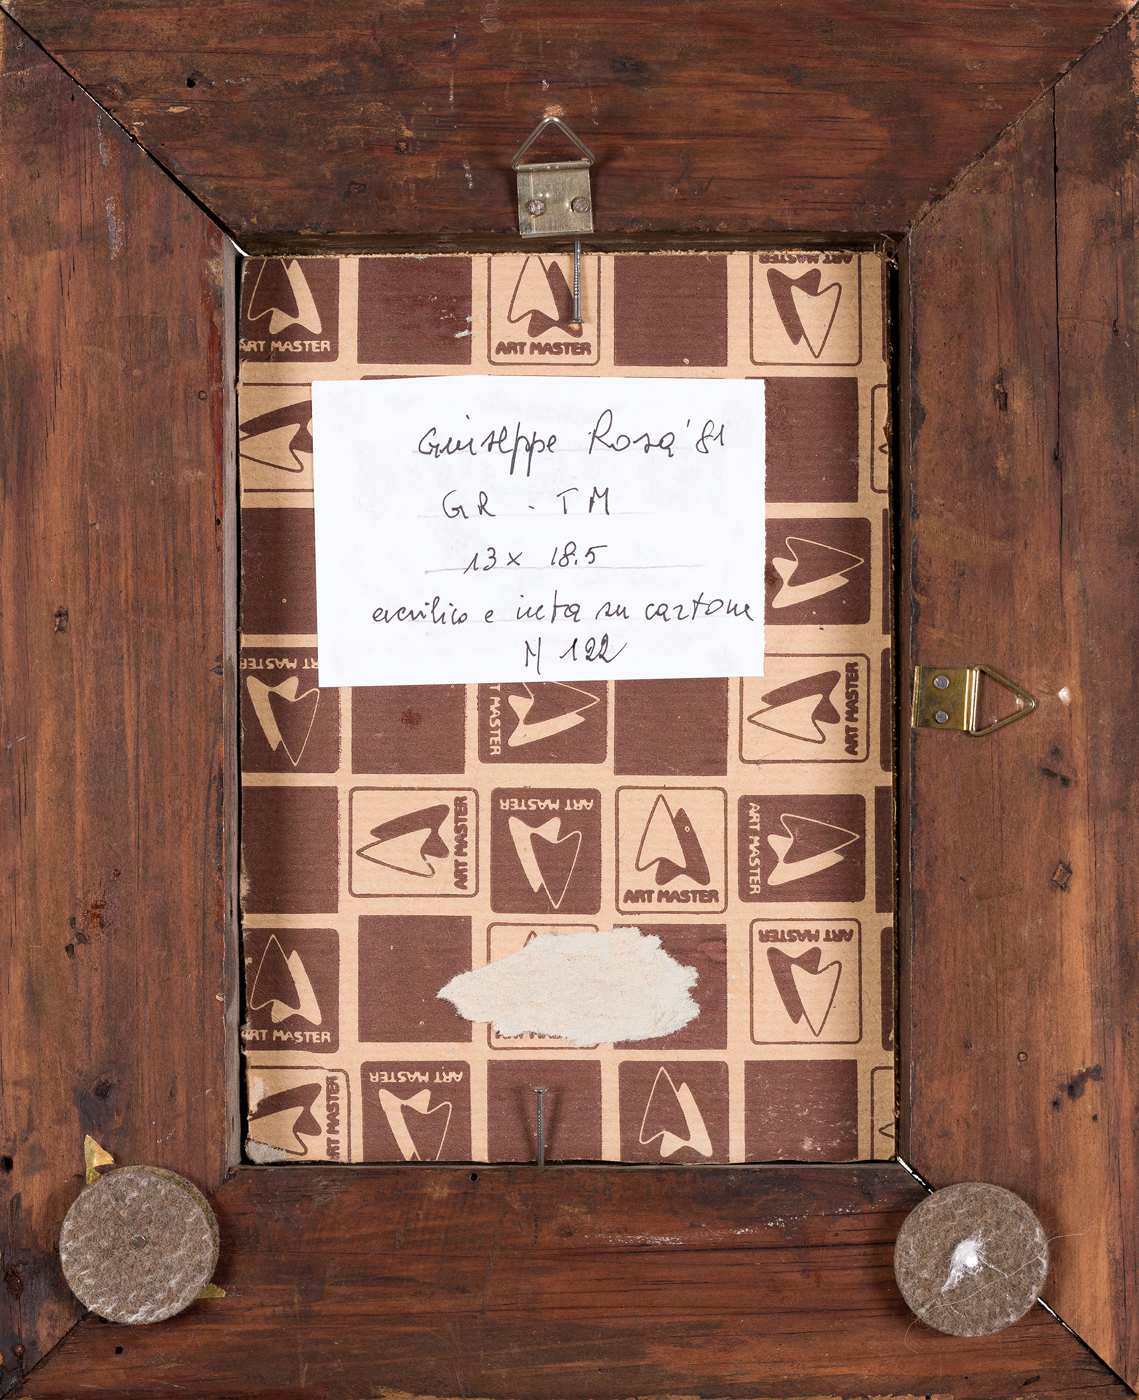 ART MASTER
ART MASTER
ART MASTER
Giuseppe Rosa '81
GR - TM
13 x 18.5
acrilico e inta su cartone
M 122
ART MASTER
ART MASTER
ART MASTER
ART MASTER
ART MASTER
ART MASTER
ART MASTER
ART MASTER
ART MASTER
ART MASTER